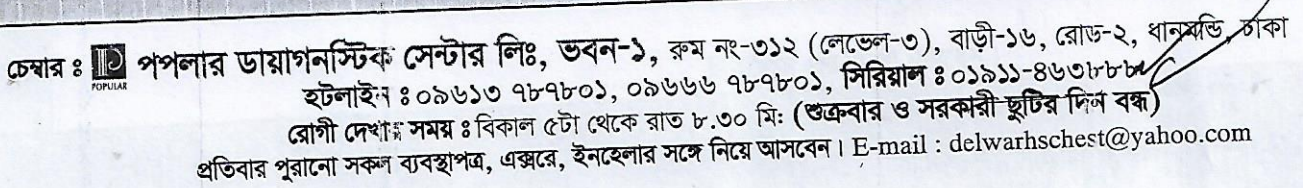 চেম্বার ঃ POPULAR পপুলার ডায়াগনস্টিক সেন্টার লিঃ, ভবন-১, রুম নং-৩১২ (লেভেল-৩), বাড়ী-১৬, রোড-২, ধানমন্ডি, ঢাকা
হটলাইন ঃ ০৯৬১৩ ৭৮৭৮০১, ০৯৬৬৬ ৭৮৭৮০১, সিরিয়াল ঃ
রোগী দেখার সময় ঃ বিকাল ৫টা থেকে রাত ৮.৩০ মিঃ (শুক্রবার ও সরকারী ছুটির দিন বন্ধ)
প্রতিবার পুরানো সকল ব্যবস্থাপত্র, এক্সরে, ইনহেলার সঙ্গে নিয়ে আসবেন। E-mail : delwarhschest@yahoo.com